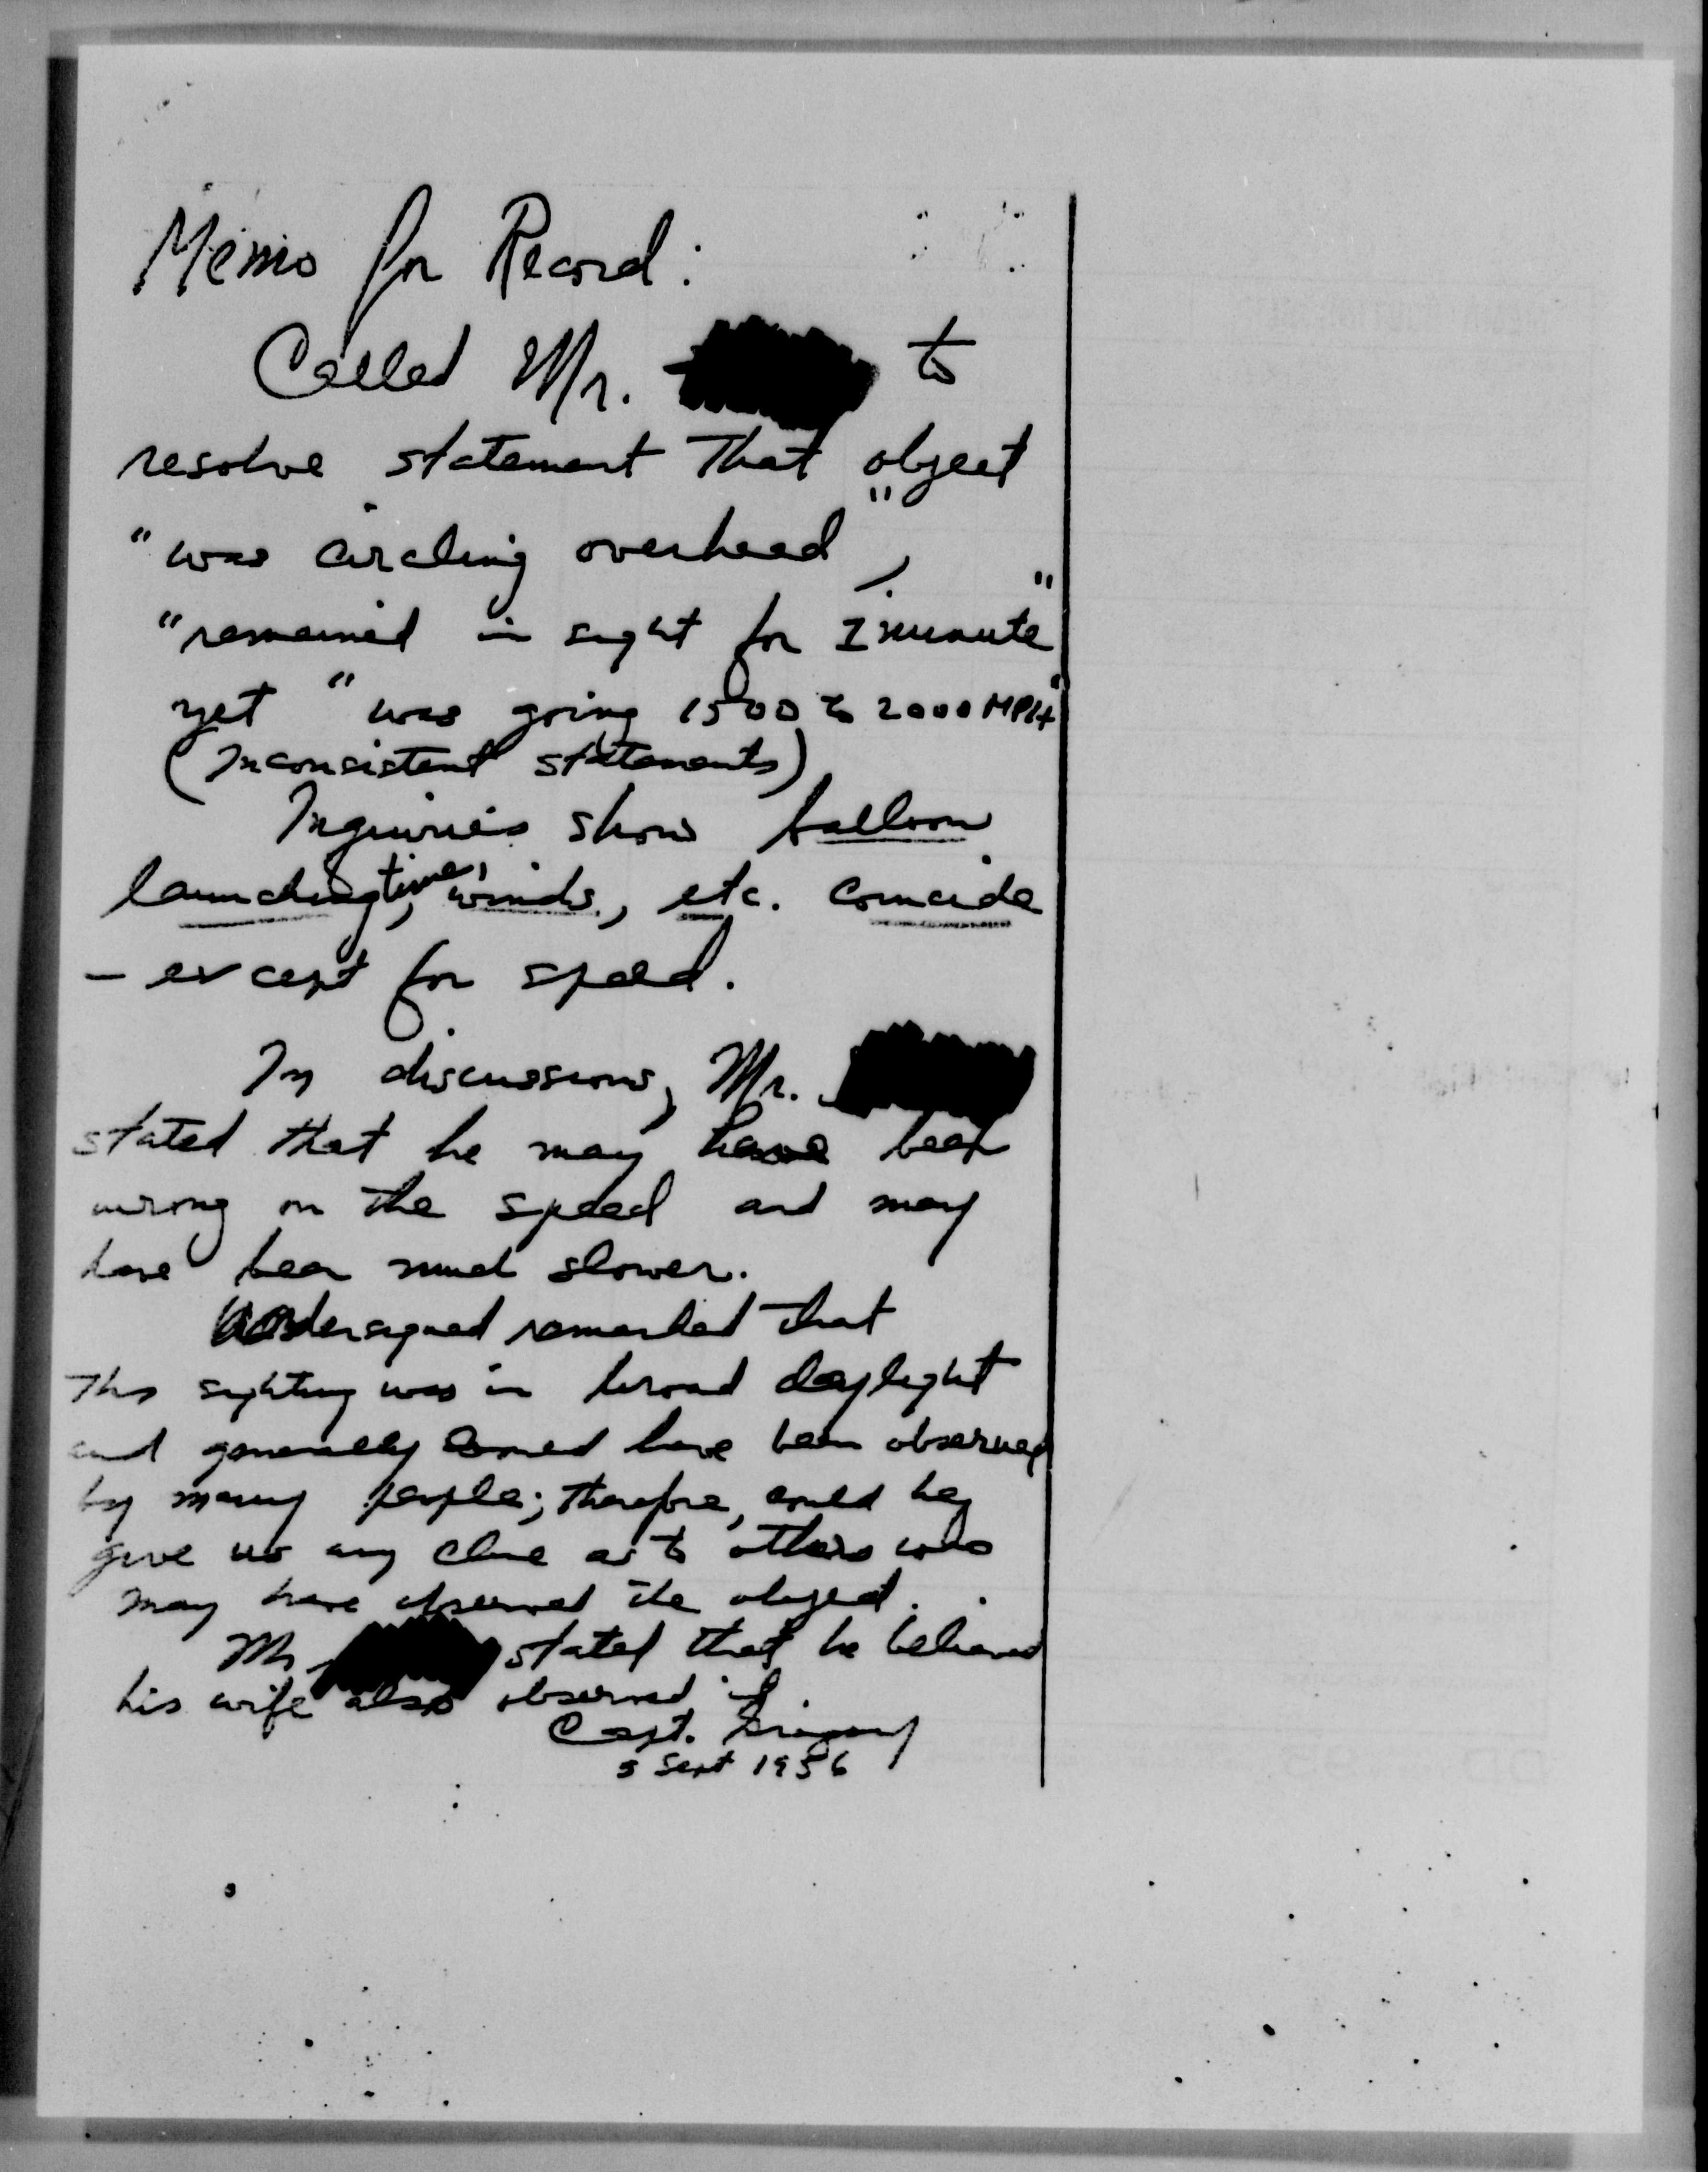 Memo for Record:
Called Mr. to
resolve statement that object
"was circling overhead",
"remained in sight for 1 minute"
yet "was going 1500 to 2000 MPH"
(Inconsistent statements)
Inquiries show balloon
launching time, winds, etc. coincide
- except for speed.
In discussions, Mr.
stated that he may have been
wrong on the speed and may
have been much slower.
Undersigned remarked that
this sighting was in broad daylight
and generally have been observed
by many people; therefore, could he
give us any clue as to others who
may have observed the object.
Mr. stated that he believed
his wife also observed it.
Capt.
Sept 1956